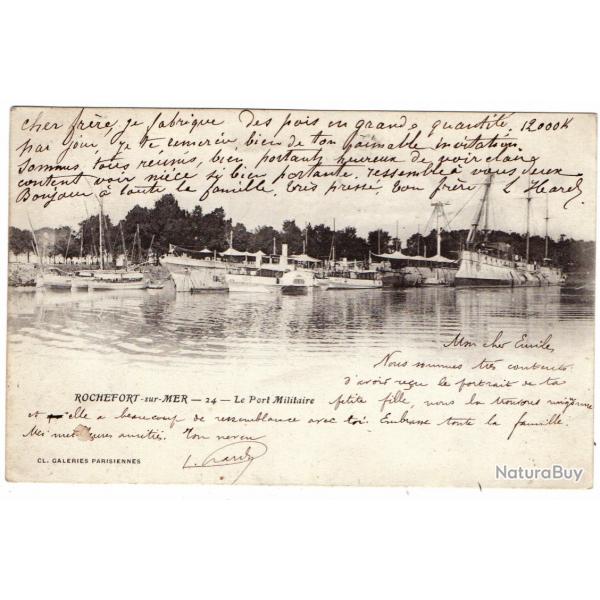 cher frère, je fabrique des pois en grande quantité, 12000K
par jour, je te remercie bien de ton aimable invitation
Sommes tous réunis, bien portants heureux de voir claire
content voir nièce si bien portante, ressemble à vous deux
Bonjour à toute la famille, très pressé, ton frère L Hardy
Mon cher Emile,
Nous sommes très contents
d'avoir reçu le portrait de ta
petite fille, nous la trouvons mignonne
et elle a beaucoup de ressemblance avec toi. Embrasse toute la famille.
Mes meilleures amitiés. Ton neveu
L. Hardy
ROCHEFORT-sur-MER — 24 — Le Port Militaire
CL. GALERIES PARISIENNES
NaturaBuy